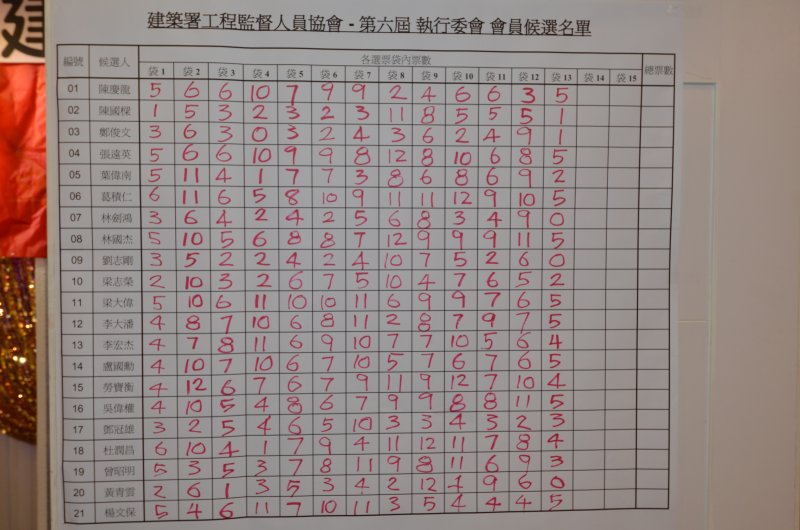 建
建築署工程監督人員協會 - 第六屆 執行委會 會員候選名單
編號 候選人 各選票袋內票數 總票數
袋1 袋2 袋3 袋4 袋5 袋6 袋7 袋8 袋9 袋10 袋11 袋12 袋13 袋14 袋15
01 陳慶龍 5 6 6 10 7 9 9 2 4 6 6 3 5
02 陳國樑 1 5 3 2 3 2 3 11 8 5 5 5 1
03 鄭俊文 3 6 3 0 3 2 4 3 6 2 4 9 1
04 張遠英 5 6 6 10 9 9 8 12 8 10 6 8 5
05 葉偉南 5 11 4 1 7 7 3 8 6 8 6 9 2
06 葛積仁 6 11 6 5 8 10 9 11 11 12 9 10 5
07 林劍鴻 3 6 4 2 4 2 5 6 8 3 4 9 0
08 林國杰 5 10 5 6 8 8 7 12 9 9 9 11 5
09 劉志剛 3 5 2 2 4 2 4 10 7 5 2 6 0
10 梁志榮 2 10 3 2 6 7 5 10 4 7 6 5 2
11 梁大偉 5 10 6 11 10 10 11 6 9 9 7 6 5
12 李大潘 4 8 7 10 6 8 11 2 8 7 9 7 5
13 李宏杰 4 7 8 11 6 9 10 7 7 10 5 6 4
14 盧國勳 4 10 7 10 6 7 10 5 7 6 7 6 5
15 勞寶衡 4 12 6 7 6 7 9 11 9 12 7 10 4
16 吳偉權 4 10 5 4 8 6 7 9 9 8 8 11 5
17 鄧冠雄 3 2 5 4 6 5 10 3 3 4 3 2 3
18 杜潤昌 6 10 4 1 7 9 4 11 12 11 7 8 4
19 曾昭明 5 3 5 3 7 8 11 9 8 11 6 9 3
20 黃青雲 2 6 1 3 5 3 4 2 12 1 9 6 0
21 楊文保 5 4 6 11 7 10 11 3 5 4 4 4 5